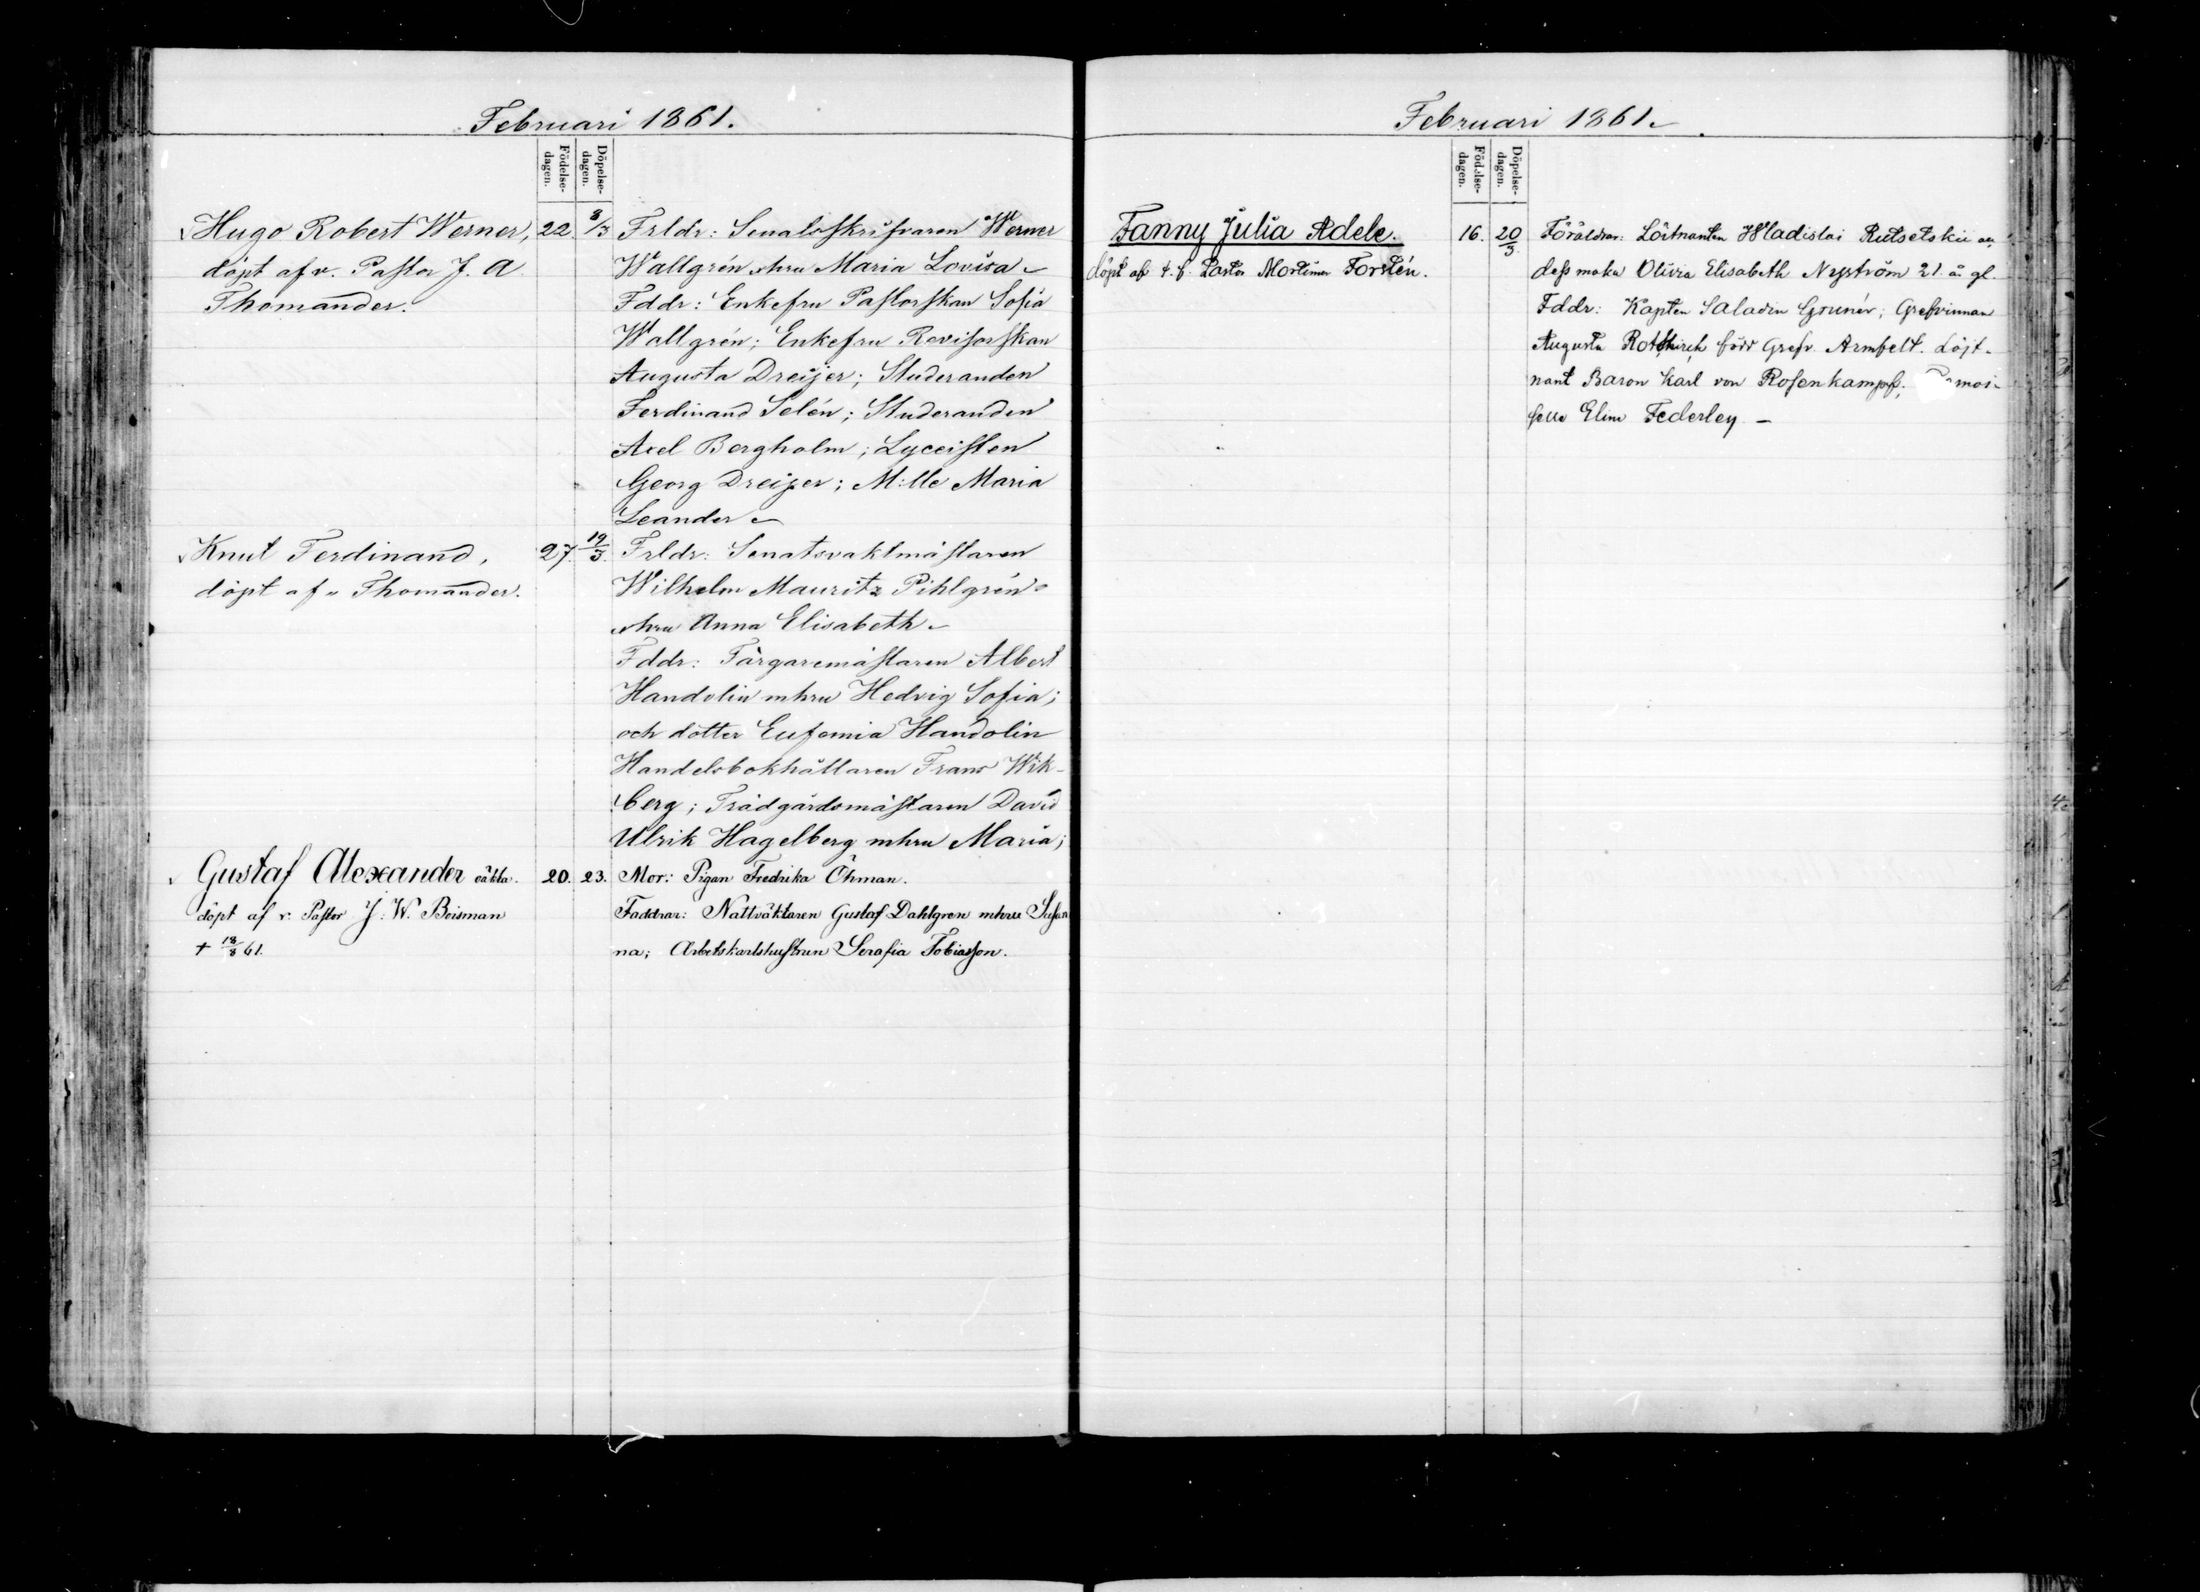 Februari 1861.
Födelse-
dagen.
Döpelse-
dagen.
Hugo Robert Werner,
döpt af v. Pastor J. A.
Thomander.
22.
8/3
Frldr: Senatsskrifvaren Werner
Wallgrén o hru Maria Lovisa
Fddr: Enkefru Pastorskan Sofia
Wallgrén; Enkefru Revisorskan
Augusta Dreijer; Studeranden
Ferdinand Selén; Studeranden
Axel Bergholm; Lyceisten
Georg Dreijer; M:lle Maria
Leander
Knut Ferdinand,
döpt af " Thomander.
27.
19/3.
Frldr: Senatsvaktmästaren
Wilhelm Mauritz Pihlgrén
o hru Anna Elisabeth
Fddr: Färgaremästaren Albert
Handolin mhru Hedvig Sofia;
och dotter Eufemia Handolin
Handelsbokhållaren Frans Wik-
berg; Trädgårdsmästaren David
Ulrik Hagelberg mhru Maria;
Gustaf Alexander oäkta.
döpt af v. Pastor J. W. Boisman
† 18/8 61.
20.
23.
Mor: Pigan Fredrika Öhman.
Faddrar: Nattväktaren Gustaf Dahlgren mhru Susan
na; Arbetskarlshustrun Serafia Tobiasson.
Februari 1861.
Födelse-
dagen.
Döpelse-
dagen.
Fanny Julia Adele.
döpt af t. f. Pastor Mortimer Forstén.
16.
20/3
Föräldrar: Löitnanten Wladislai Rutsetskii
dess maka Olivia Elisabeth Nyström 21 å gl.
Fddr: Kapten Saladin Grunér; Grefvinnan
Augusta Rotkirch född Grefv. Armfelt. Löjt-
nant Baron Karl von Rosenkampf; mosi-
selle Eline Federley